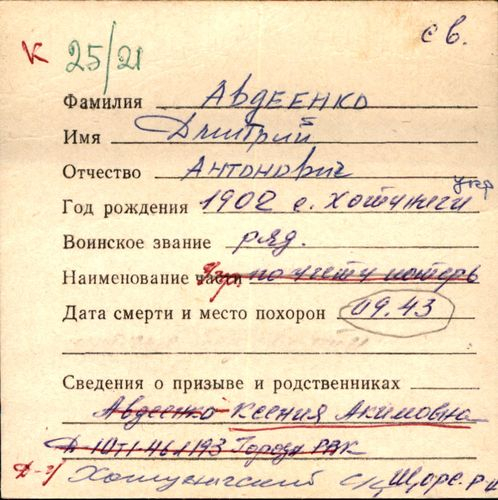 К 25/21 св.
Фамилия Авдеенко
Имя Дмитрий
Отчество Антонович
укр
Год рождения 1902 с. Хотуничи
Воинское звание ряд.
Наименование части по учету потерь
Дата смерти и место похорон 09.43
Сведения о призыве и родственниках
Авдеенко Ксения Акимовна
Городн РВК
Хотуничский с/с Щорс. р-н